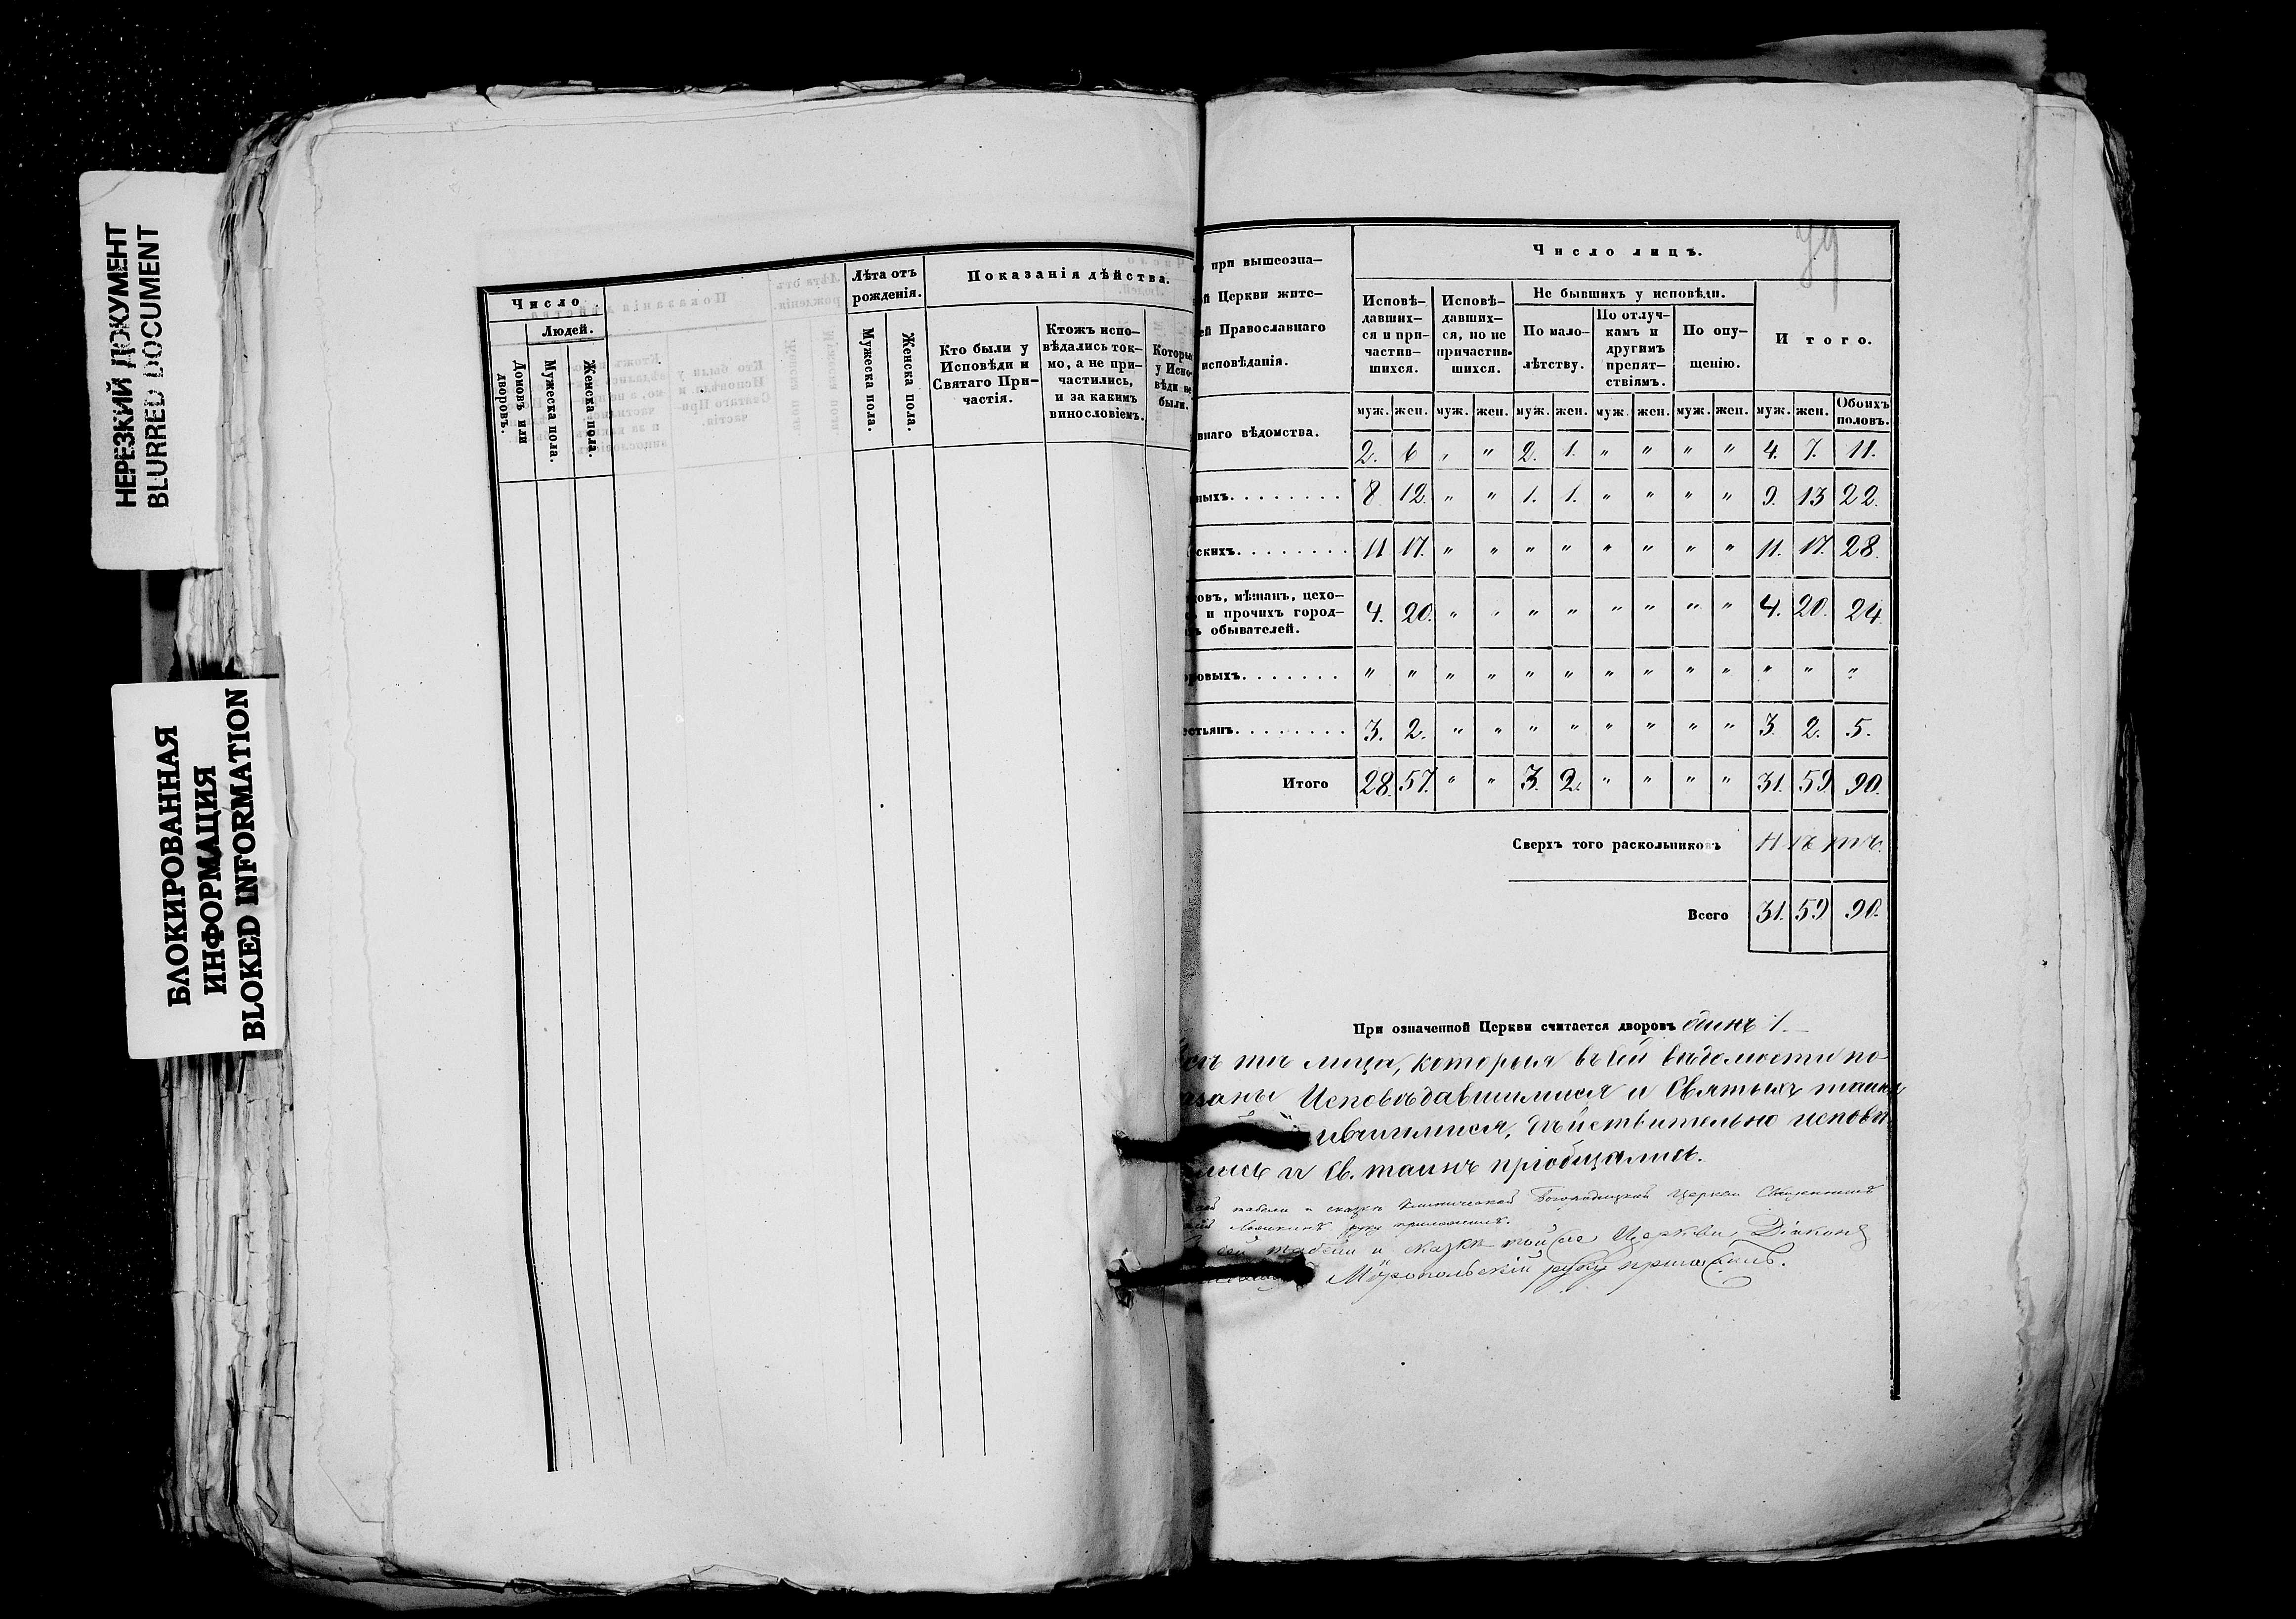 НЕРЕЗКИЙ ДОКУМЕНТ
BLURRED DOCUMENT
БЛОКИРОВАННАЯ
ИНФОРМАЦИЯ
BLOKED INFORMATION
Число
Людей.
Домовъ или дворовъ.
Мужеска пола.
Женска пола.
Лѣта отъ
рожденія.
Мужеска пола.
Женска пола.
Показанія дѣйства.
Кто были у
Исповѣди и
Святаго При-
частія.
Ктожъ испо-
вѣдались ток-
мо, а не при-
частились,
и за какимъ
винословіемъ.
Которые
у Испо-
вѣди не
были.
79
при вышеозна-
й Церкви жите-
ей Православнаго
исповѣданія.
Число лицъ.
Исповѣ-
давших-
ся и при-
частив-
шихся.
Исповѣ-
давших-
ся, но не
причастив-
шихся.
Не бывшихъ у исповѣди.
По мало-
лѣтству.
По отлуч-
камъ и
другимъ
препят-
ствіямъ.
По опу-
щенію.
Итого.
муж. жен. муж. жен. муж. жен. муж. жен. муж. жен. муж. жен. Обоихъ половъ.
внаго вѣдомства. 2. 6 " " 2. 1. " " " " 4. 7. 11.
ныхъ. 8 12. " " 1. 1. " " " " 9. 13 22.
скихъ. 11 17. " " " " " " " " 11. 17. 28.
овъ, мѣщанъ, цехо-
и прочихъ город-
ъ обывателей. 4. 20. " " " " " " " " 4. 20. 24.
ровыхъ. " " " " " " " " " " " " "
стьянъ. 3. 2. " " " " " " " " 3. 2. 5.
Итого 28. 57. " " 3. 2. " " " " 31. 59. 90.
Сверхъ того раскольниковъ нѣтъ.
Всего 31. 59. 90.
При означенной Церкви считается дворовъ одинъ 1.
тѣ лица, которыя въ сей вѣдомости по-
казаны Исповѣдавшимися и Святыхъ таинъ
ившимися, дѣйствительно исповѣ
лись и Св. таинъ пріобщались.
табели и сказкѣ Богородицкой Церкви Священникъ
руку приложилъ.
сей табели и сказкѣ тойже Церкви, Діаконъ
Миропольскій руку приложилъ.